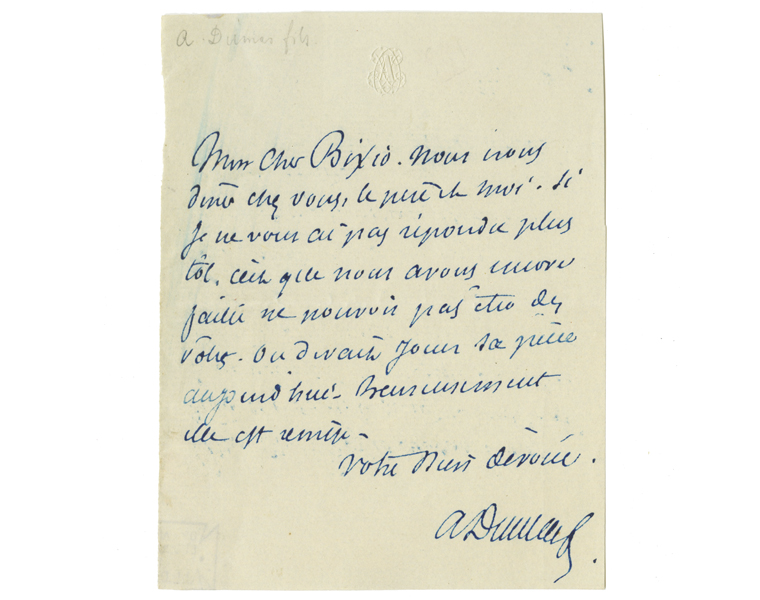 A. Dumas fils.
Mon cher Bixio. Nous irons
diner chez vous, le père et moi. Si
je ne vous ai pas répondu plus
tôt, c'est que nous avons encore
failli ne pouvoir pas être des
vôtres. On devait jouer sa pièce
aujourd'hui. heureusement
elle est remise.
Votre bien dévoué.
A Dumas f.